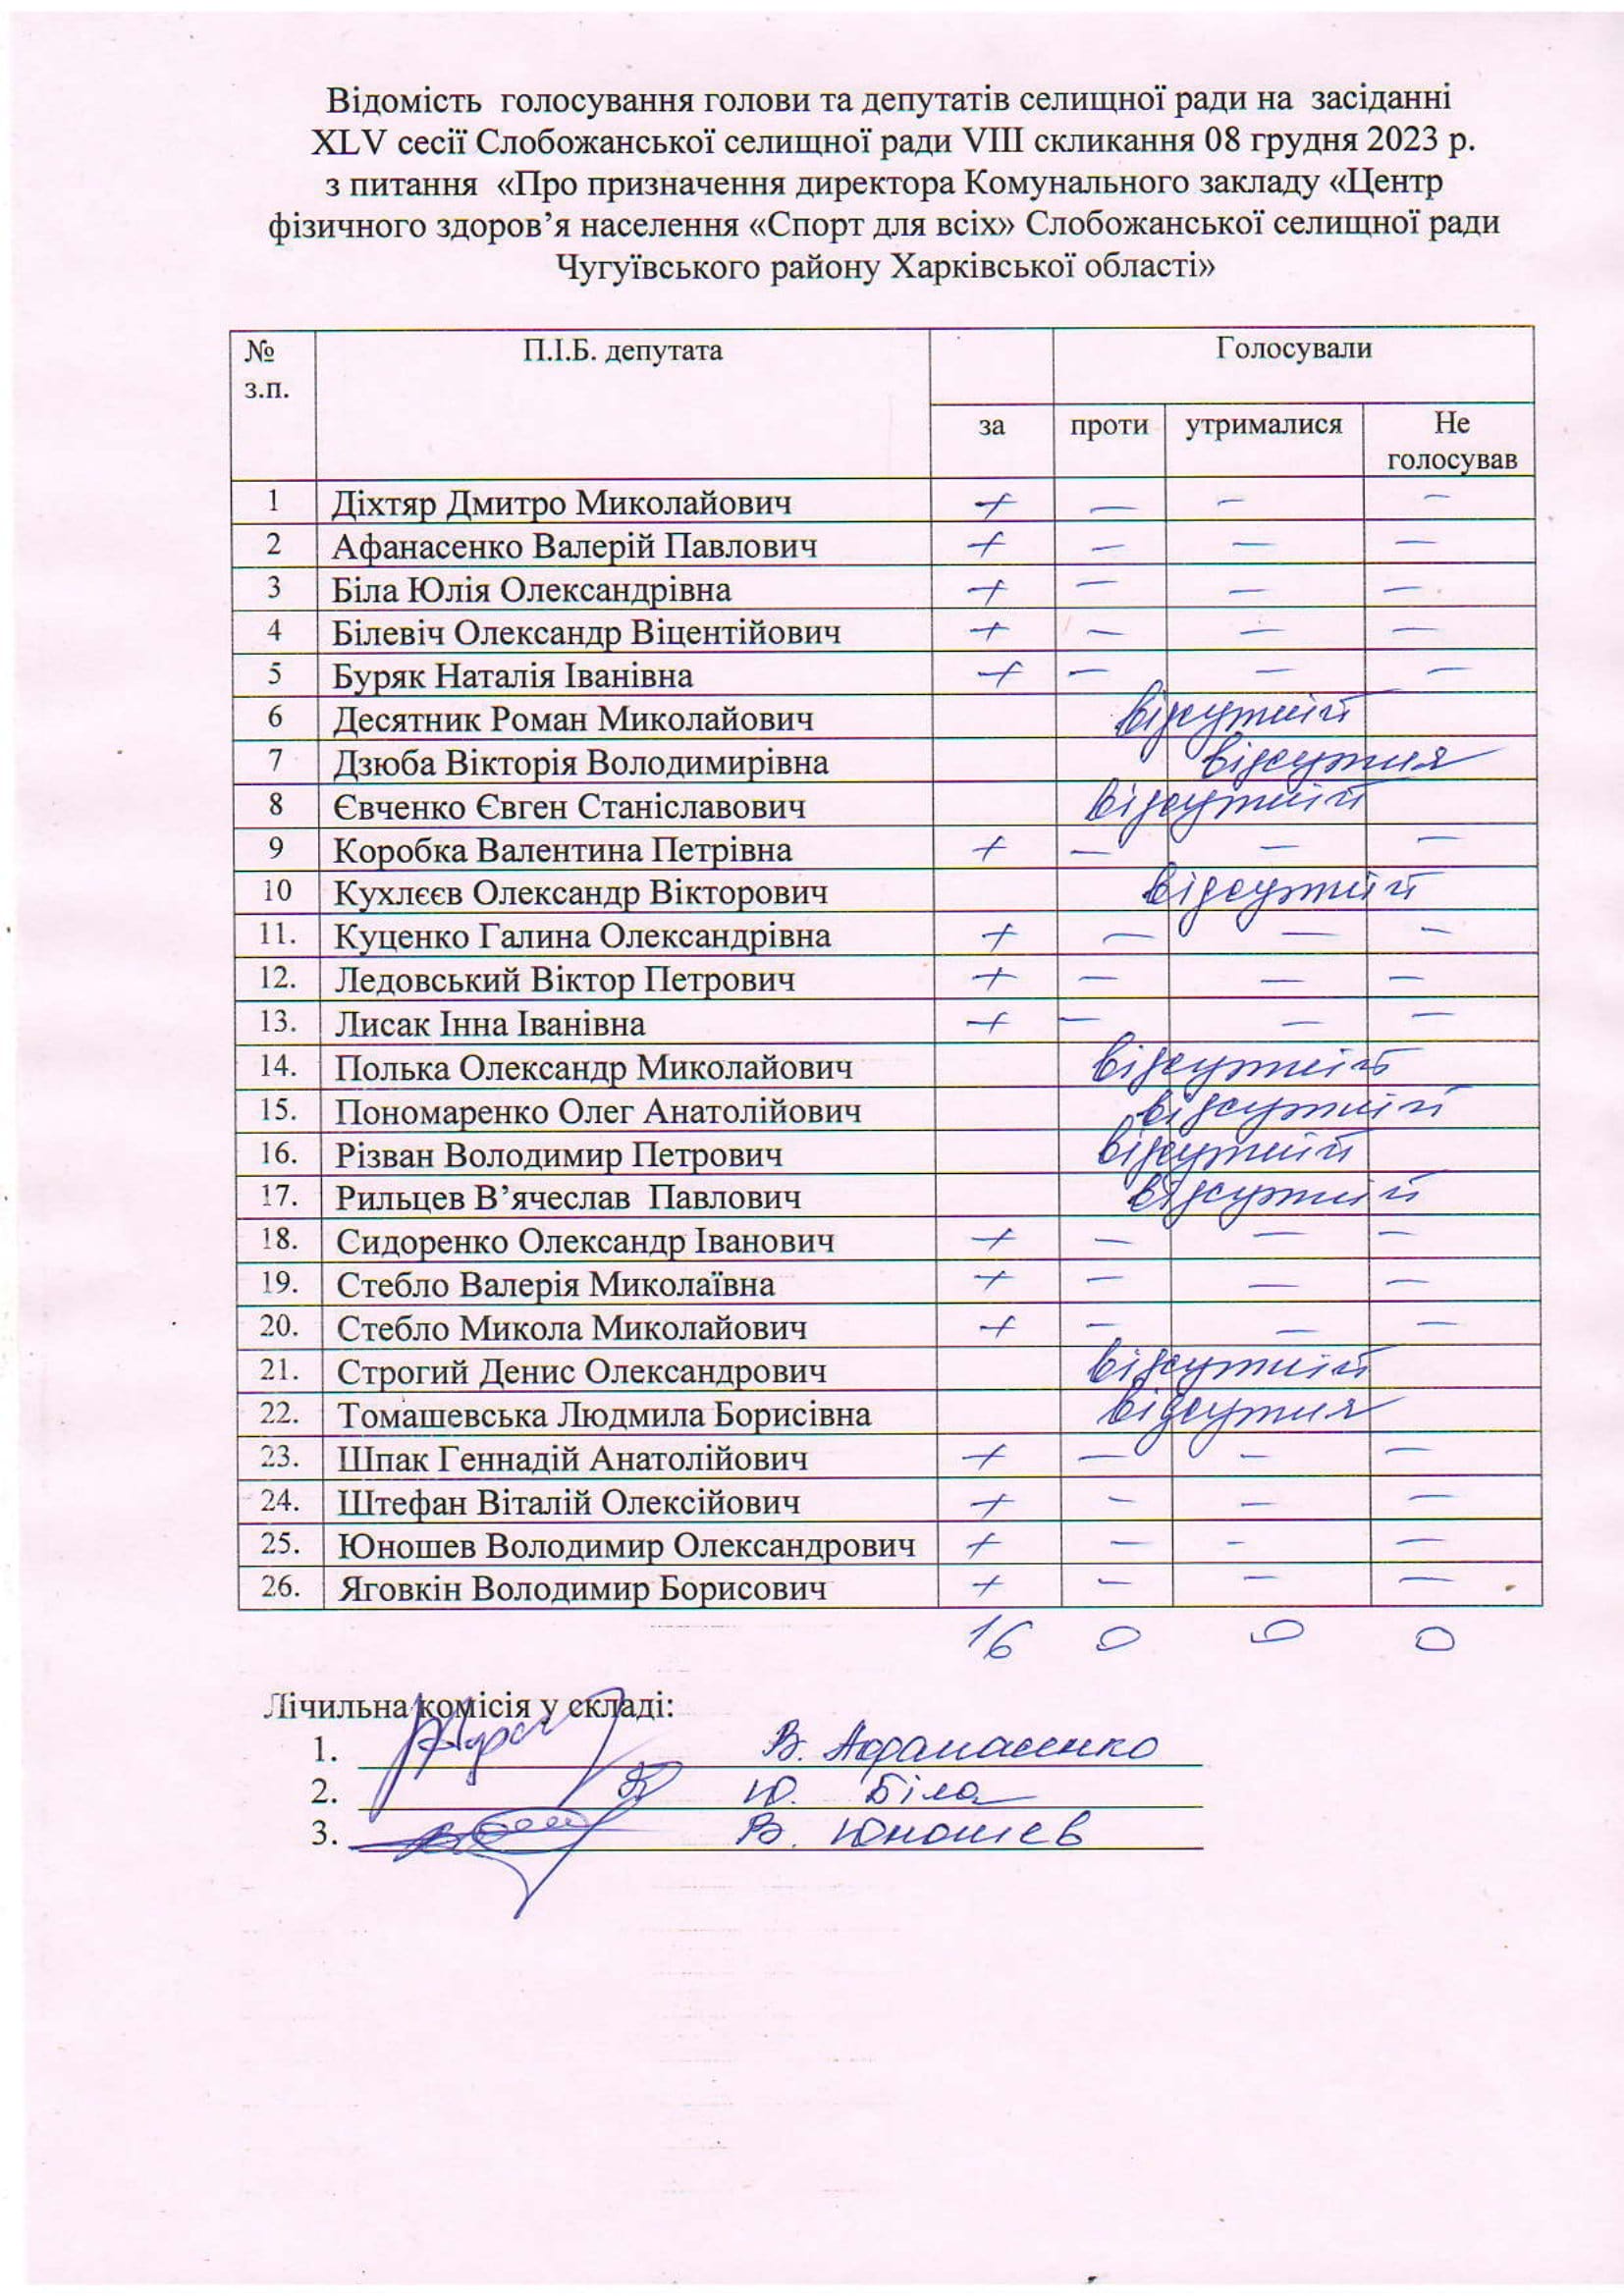 Відомість голосування голови та депутатів селищної ради на засіданні
XLV сесії Слобожанської селищної ради VIII скликання 08 грудня 2023 р.
з питання «Про призначення директора Комунального закладу «Центр
фізичного здоров’я населення «Спорт для всіх» Слобожанської селищної ради
Чугуївського району Харківської області»
№ з.п. П.І.Б. депутата Голосували
за проти утрималися Не голосував
1 Діхтяр Дмитро Миколайович + — — —
2 Афанасенко Валерій Павлович + — — —
3 Біла Юлія Олександрівна + — — —
4 Білевіч Олександр Віцентійович + — — —
5 Буряк Наталія Іванівна + — — —
6 Десятник Роман Миколайович відсутній
7 Дзюба Вікторія Володимирівна відсутня
8 Євченко Євген Станіславович відсутній
9 Коробка Валентина Петрівна + — — —
10 Кухлєєв Олександр Вікторович відсутній
11. Куценко Галина Олександрівна + — — —
12. Ледовський Віктор Петрович + — — —
13. Лисак Інна Іванівна + — — —
14. Полька Олександр Миколайович відсутній
15. Пономаренко Олег Анатолійович відсутній
16. Різван Володимир Петрович відсутній
17. Рильцев В’ячеслав Павлович відсутній
18. Сидоренко Олександр Іванович + — — —
19. Стебло Валерія Миколаївна + — — —
20. Стебло Микола Миколайович + — — —
21. Строгий Денис Олександрович відсутній
22. Томашевська Людмила Борисівна відсутня
23. Шпак Геннадій Анатолійович + — — —
24. Штефан Віталій Олексійович + — — —
25. Юношев Володимир Олександрович + — — —
26. Яговкін Володимир Борисович + — — —
16 0 0 0
Лічильна комісія у складі:
1. В. Афанасенко
2. Ю. Біла
3. В. Юношев